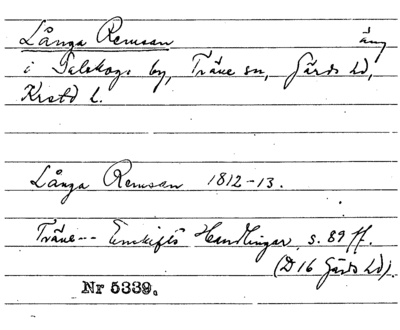 Långa Remsan äng
i Talskogs by, Träne sn, Gärds hd,
Krstd l.
Långa Remsan 1812-13.
Träne -- Enskifts Handlingar, s. 89 ff.
(D 16 Gärds hd).
Nr 5339.